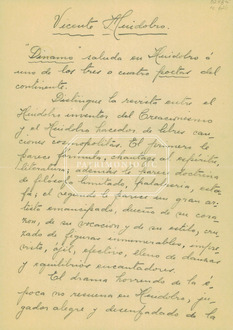 Vicente Huidobro.
"Dínamo" saluda en Huidobro á
uno de los tres o cuatro poetas del
continente.
Distingue la revista entre el
Huidobro inventor del Creacionismo
y el Huidobro hacedor de libres can-
ciones cosmopolitas. El primero le
parece fórmula, chantage al espíritu,
literatura; además le parece doctrina
de filósofo limitado,
el segundo le parece un gran ar-
tista emancipado, dueño de su cora-
zón, de su vocación y de su estilo, cru-
zado de figuras innumerables, impre-
visto, ágil, efectivo, lleno de danzas
y equilibrios encantadores.
El drama horrendo de la é-
poca no resuena en Huidobro, ju-
gador alegre y desenfadado de la